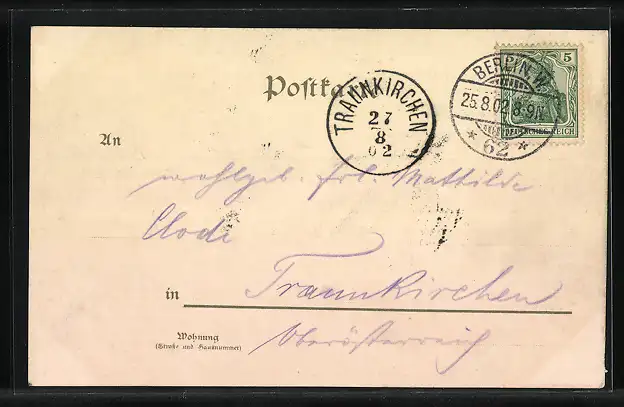 Postka
TRAUNKIRCHEN
27
8
02
BERLIN.W.
25.8.02. 8-9N
* 62 *
5
DEUTSCHES REICH
An
wohlgeb. Frl. Mathilde
in Traunkirchen
Wohnung
(Straße und Hausnummer)
Oberösterreich